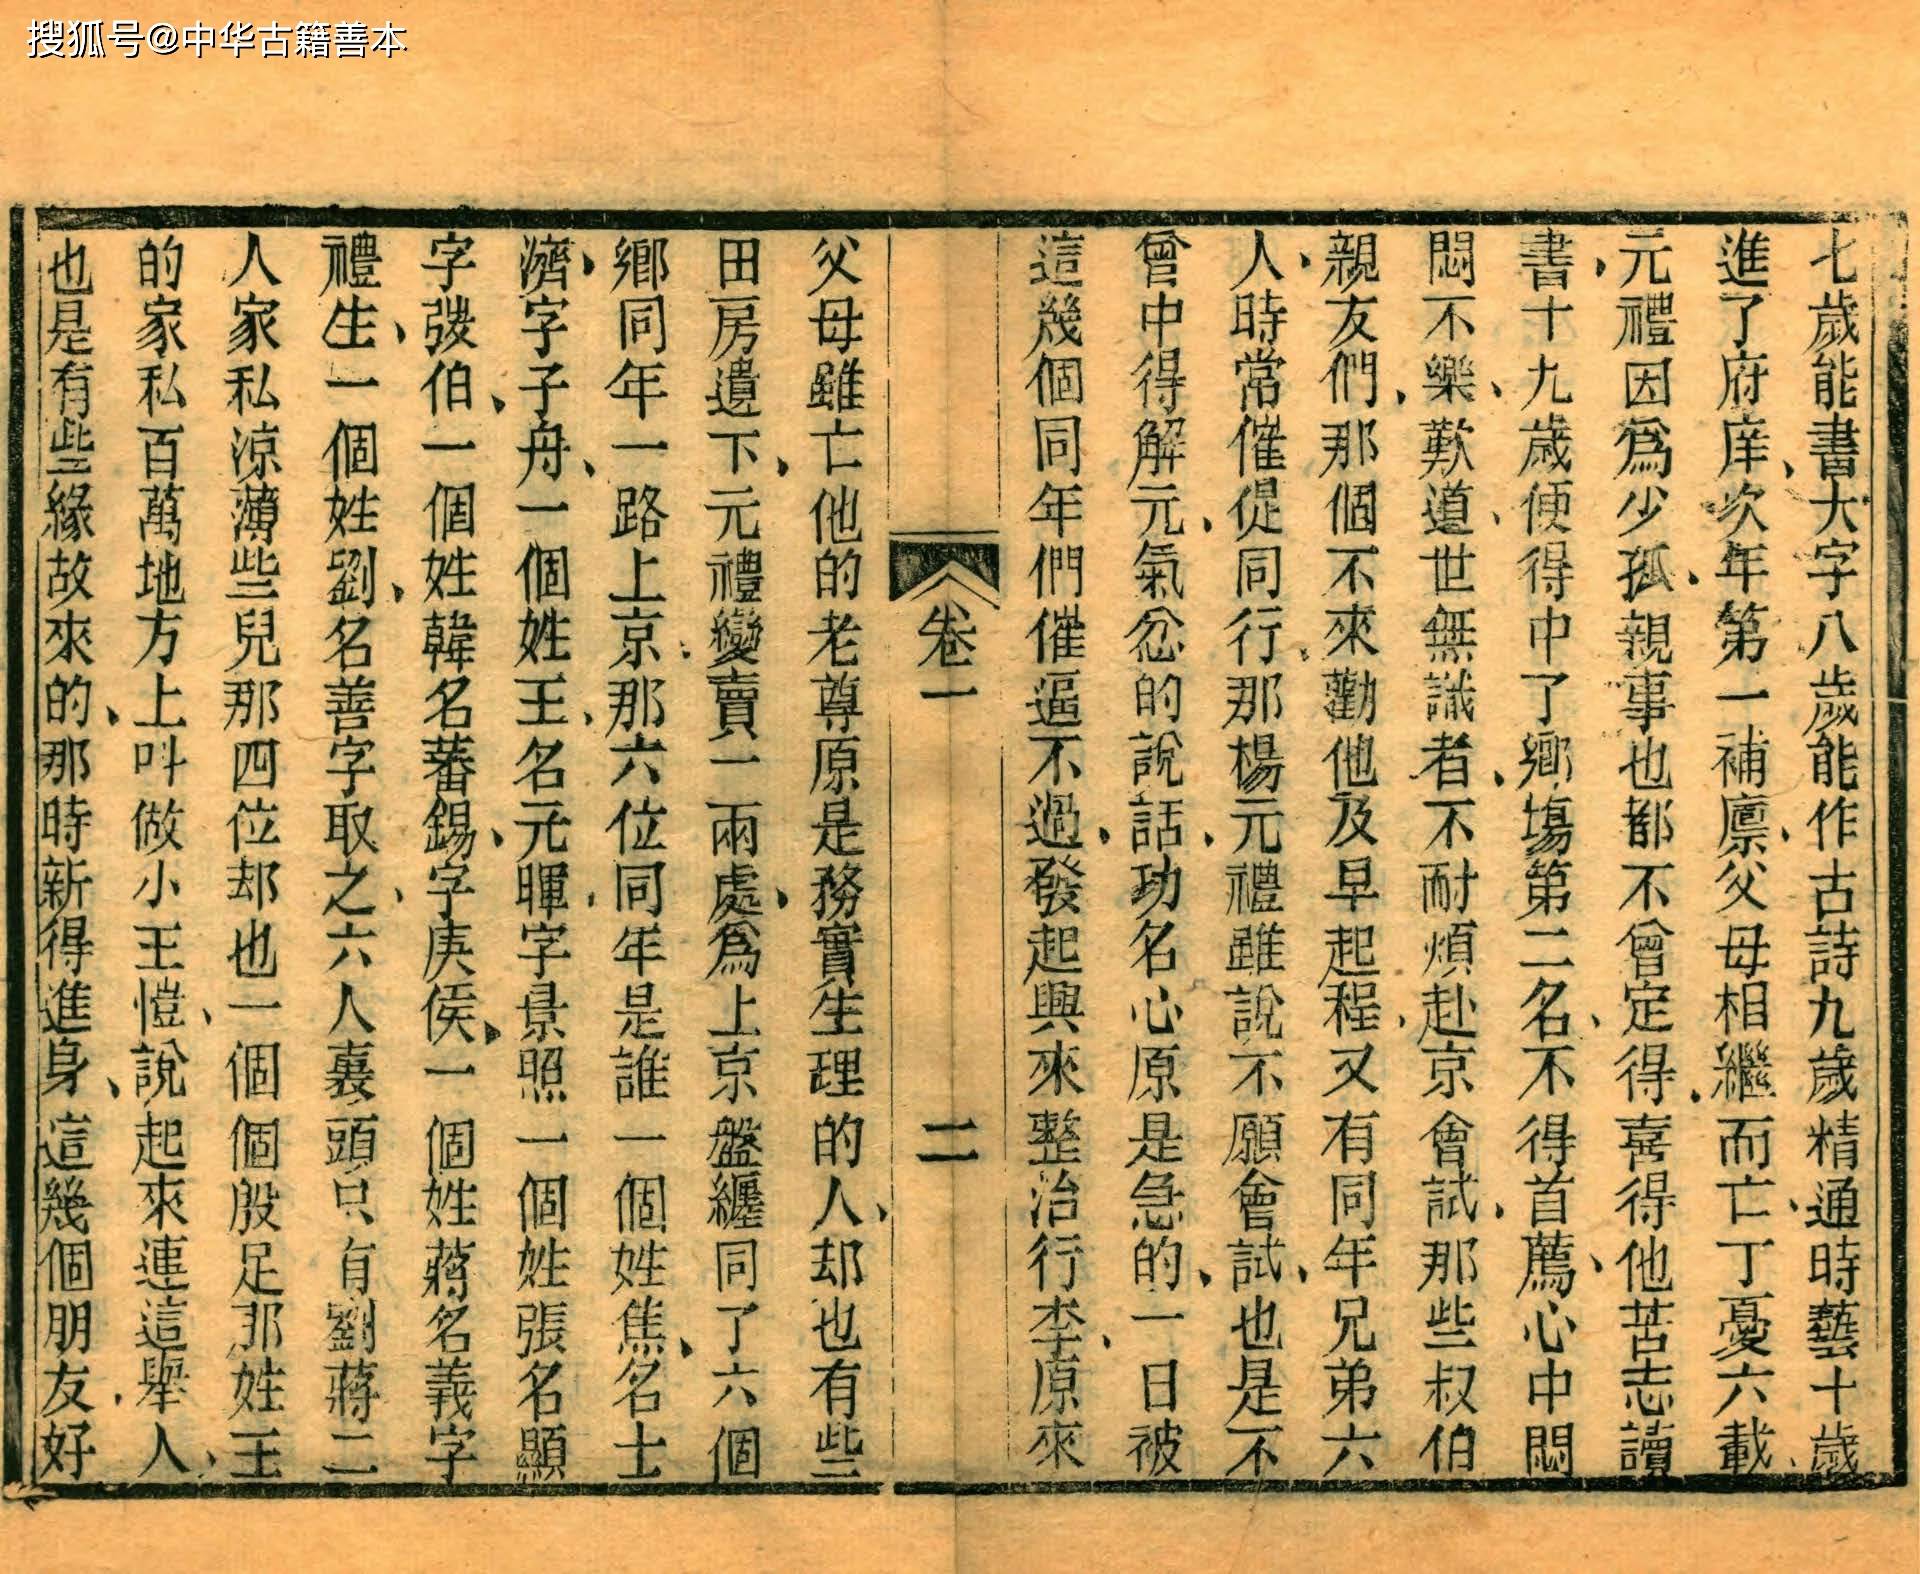 搜狐号@中华古籍善本
七歲能書大字八歲能作古詩九歲精通時藝十歲
進了府庠、次年第一補廪、父母相繼而亡、丁憂六載、
元禮因爲少孤、親事也都不曾定得、喜得他苦志讀
書、十九歲便得中了鄉塲第二名、不得首薦、心中悶
悶不樂、歎道、世無識者、不耐煩赴京會試、那些叔伯
親友們、那個不來勸他及早起程、又有同年兄弟六
人、時常催促同行、那楊元禮雖說不願會試、也是不
曾中得解元、氣忿的說話、功名心原是急的、一日被
這幾個同年們催逼不過、發起興來整治行李、原來
卷一
二
父母雖亡他的老尊原是務實生理的人、却也有些
田房遺下、元禮變賣一兩處、爲上京盤纏同了六個
鄉同年一路上京、那六位同年是誰一個姓焦、名士
濟、字子舟、一個姓王、名元暉、字景照一個姓張名顯
字弢伯、一個姓韓名蕃錫、字庚侯、一個姓蔣名義字
禮生、一個姓劉、名善字取之、六人裏頭只有劉蔣二
人家私凉薄些兒那四位却也一個個殷足那姓王
的家私百萬地方上呌做小王愷、說起來連這舉人、
也是有些緣故來的、那時新得進身、這幾個朋友、好